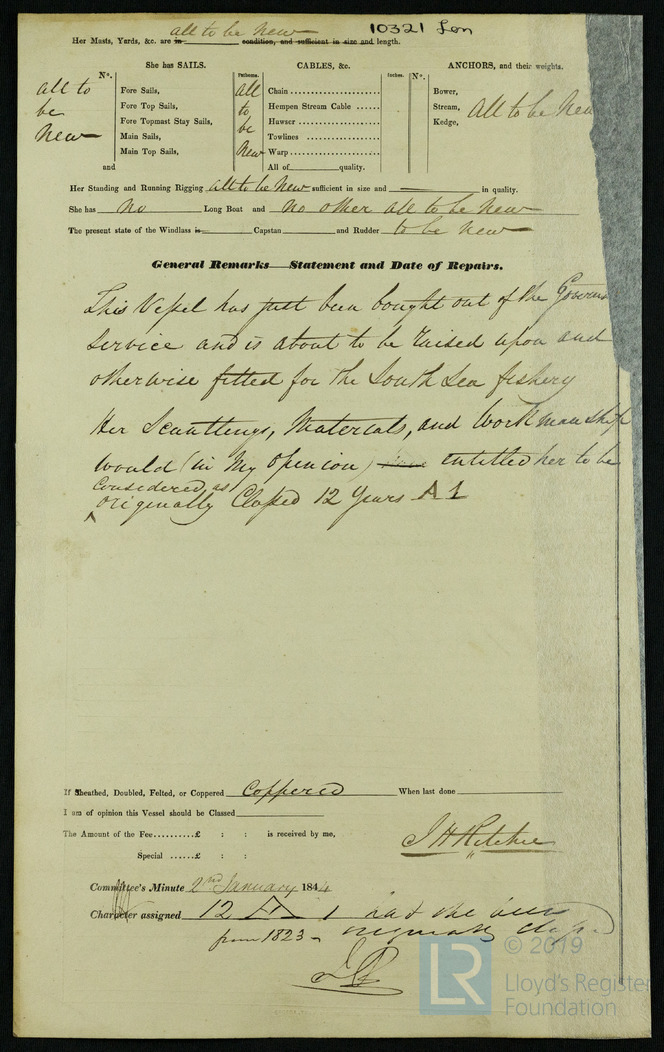 all to be New 10321 Lon
Her Masts, Yards, &c. are in condition, and sufficient in size and length.
She has SAILS. CABLES, &c. ANCHORS, and their weights.
No. Fathoms. Inches. No.
all to be New
Fore Sails,
Fore Top Sails,
Fore Topmast Stay Sails,
Main Sails,
Main Top Sails,
and
all to be New
Chain
Hempen Stream Cable
Hawser
Towlines
Warp
All of quality.
Bower,
Stream,
Kedge,
all to be New
Her Standing and Running Rigging all to be New sufficient in size and in quality.
She has No Long Boat and No other all to be New
The present state of the Windlass is Capstan and Rudder to be New
General Remarks—Statement and Date of Repairs.
This Vessel has just been bought out of the Governm
Service and is about to be raised upon and
otherwise fitted for the South Sea fishery
Her Scantlings, Materials, and Workmanship
would (in My Opinion) entitled her to be
Considered as
originally Classed 12 Years A 1
If Sheathed, Doubled, Felted, or Coppered Coppered When last done
I am of opinion this Vessel should be Classed
The Amount of the Fee..........£ : : is received by me,
Special ......£ : :
J H Ritchie
Committee's Minute 2nd January 1844
Character assigned 12 A 1 had she been
from 1823 - originally Classed
© 2019
LR
Lloyd's Register
Foundation